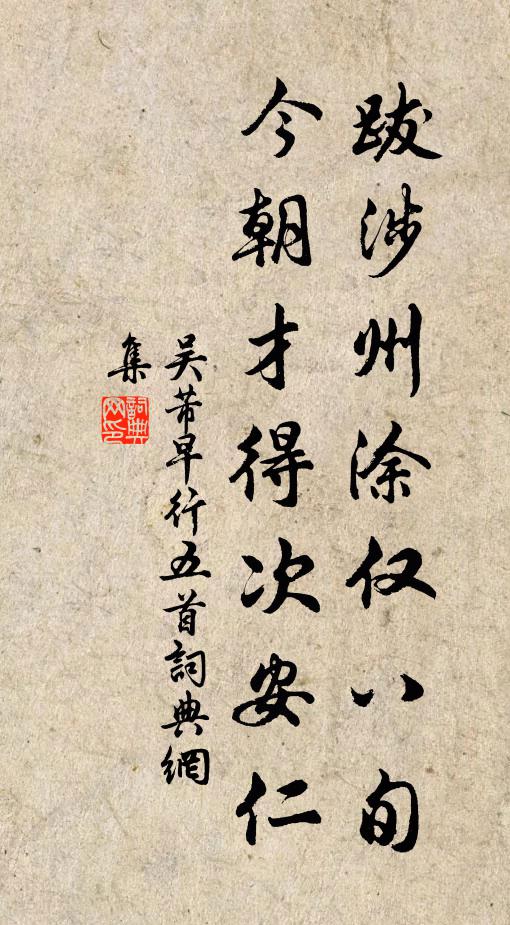 跋涉州涂仅八旬
今朝才得次安仁
吴芾早行五首詞典網
集
詞典网印